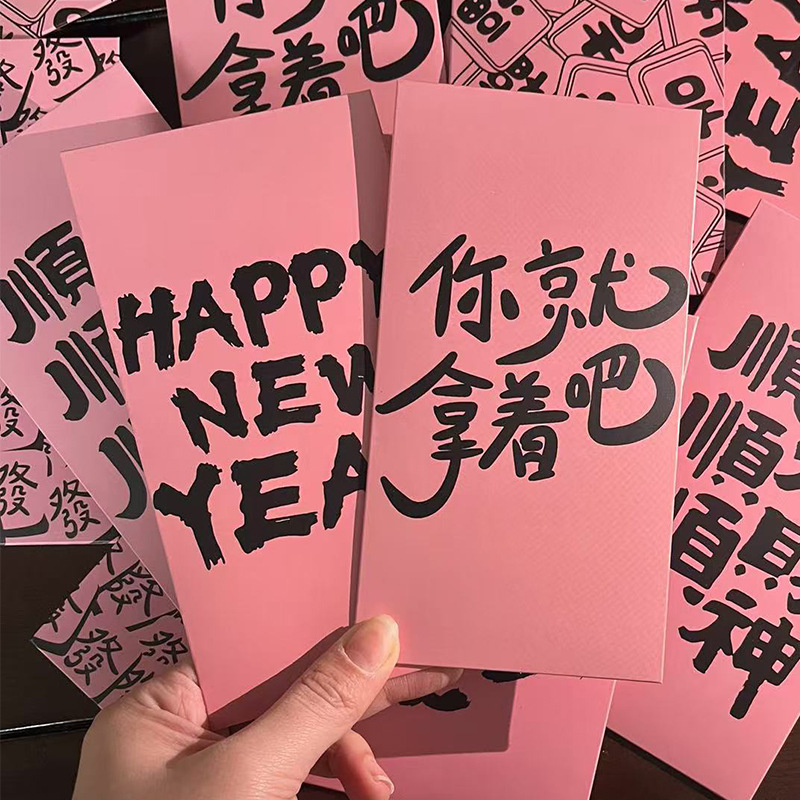 發
發
拿着吧
YEA
HAPPY
NEW
YEA
你就
拿着吧
順
順
順
順財
神
發
發
發
發
發